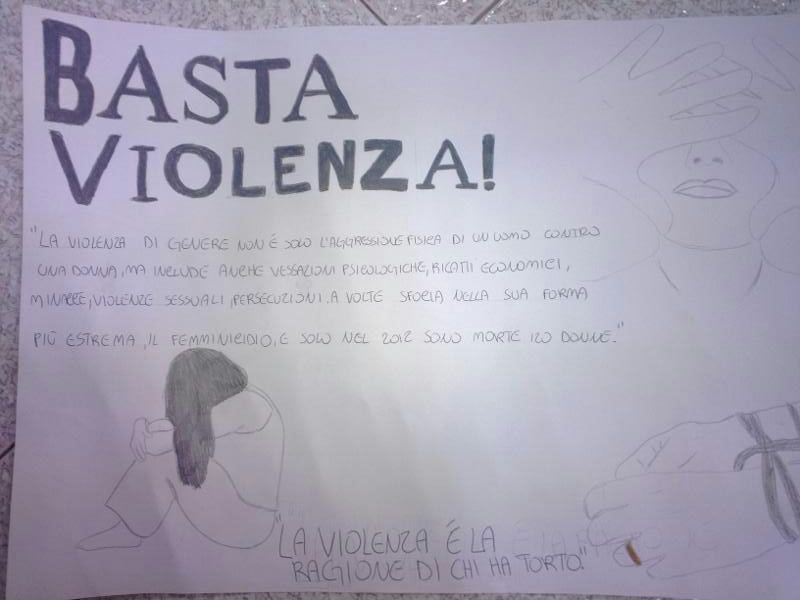 BASTA
VIOLENZA!
"LA VIOLENZA DI GENERE NON É SOLO L'AGGRESSIONE FISICA DI UN UOMO CONTRO
UNA DONNA, MA INCLUDE ANCHE VESSAZIONI PSICOLOGICHE, RICATTI ECONOMICI,
MINACCE, VIOLENZE SESSUALI, PERSECUZIONI. A VOLTE SFOCIA NELLA SUA FORMA
PIÙ ESTREMA, IL FEMMINICIDIO, E SOLO NEL 2012 SONO MORTE 120 DONNE."
"LA VIOLENZA É LA
RAGIONE DI CHI HA TORTO."